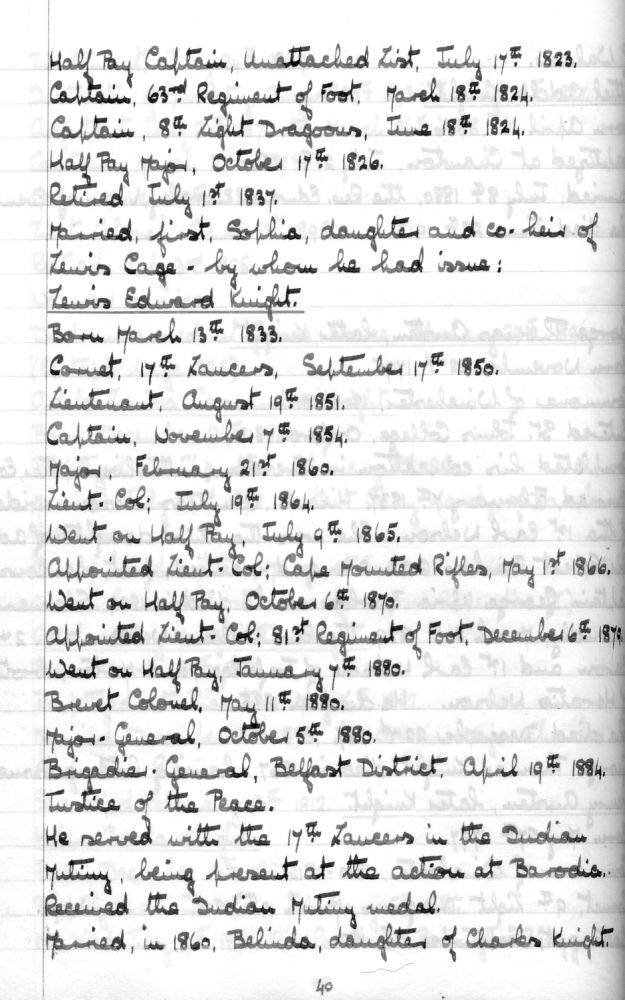 Half Pay Captain, Unattached List, July 17th 1823.
Captain, 63rd Regiment of Foot, March 18th 1824.
Captain, 8th Light Dragoons, June 18th 1824.
Half Pay Major, October 17th 1826.
Retired July 1st 1837.
Married, first, Sophia, daughter and co-heir of
Lewis Cage - by whom he had issue:
Lewis Edward Knight.
Born March 13th 1833.
Cornet, 17th Lancers, September 17th 1850.
Lieutenant, August 19th 1851.
Captain, November 7th 1854.
Major, February 21st 1860.
Lieut-Col; July 19th 1864.
Went on Half Pay, July 9th 1865.
Appointed Lieut-Col; Cape Mounted Rifles, May 1st 1866.
Went on Half Pay, October 6th 1870.
Appointed Lieut-Col; 81st Regiment of Foot, December 6th
Went on Half Pay, January 7th 1880.
Brevet Colonel, May 11th 1880.
Major-General, October 5th 1880.
Brigadier-General, Belfast District, April 19th 1884.
Justice of the Peace.
He served with the 17th Lancers in the Indian
Mutiny, being present at the action at Barodia.
Received the Indian Mutiny medal.
Married, in 1860, Belinda, daughter of Charles Knight.
40